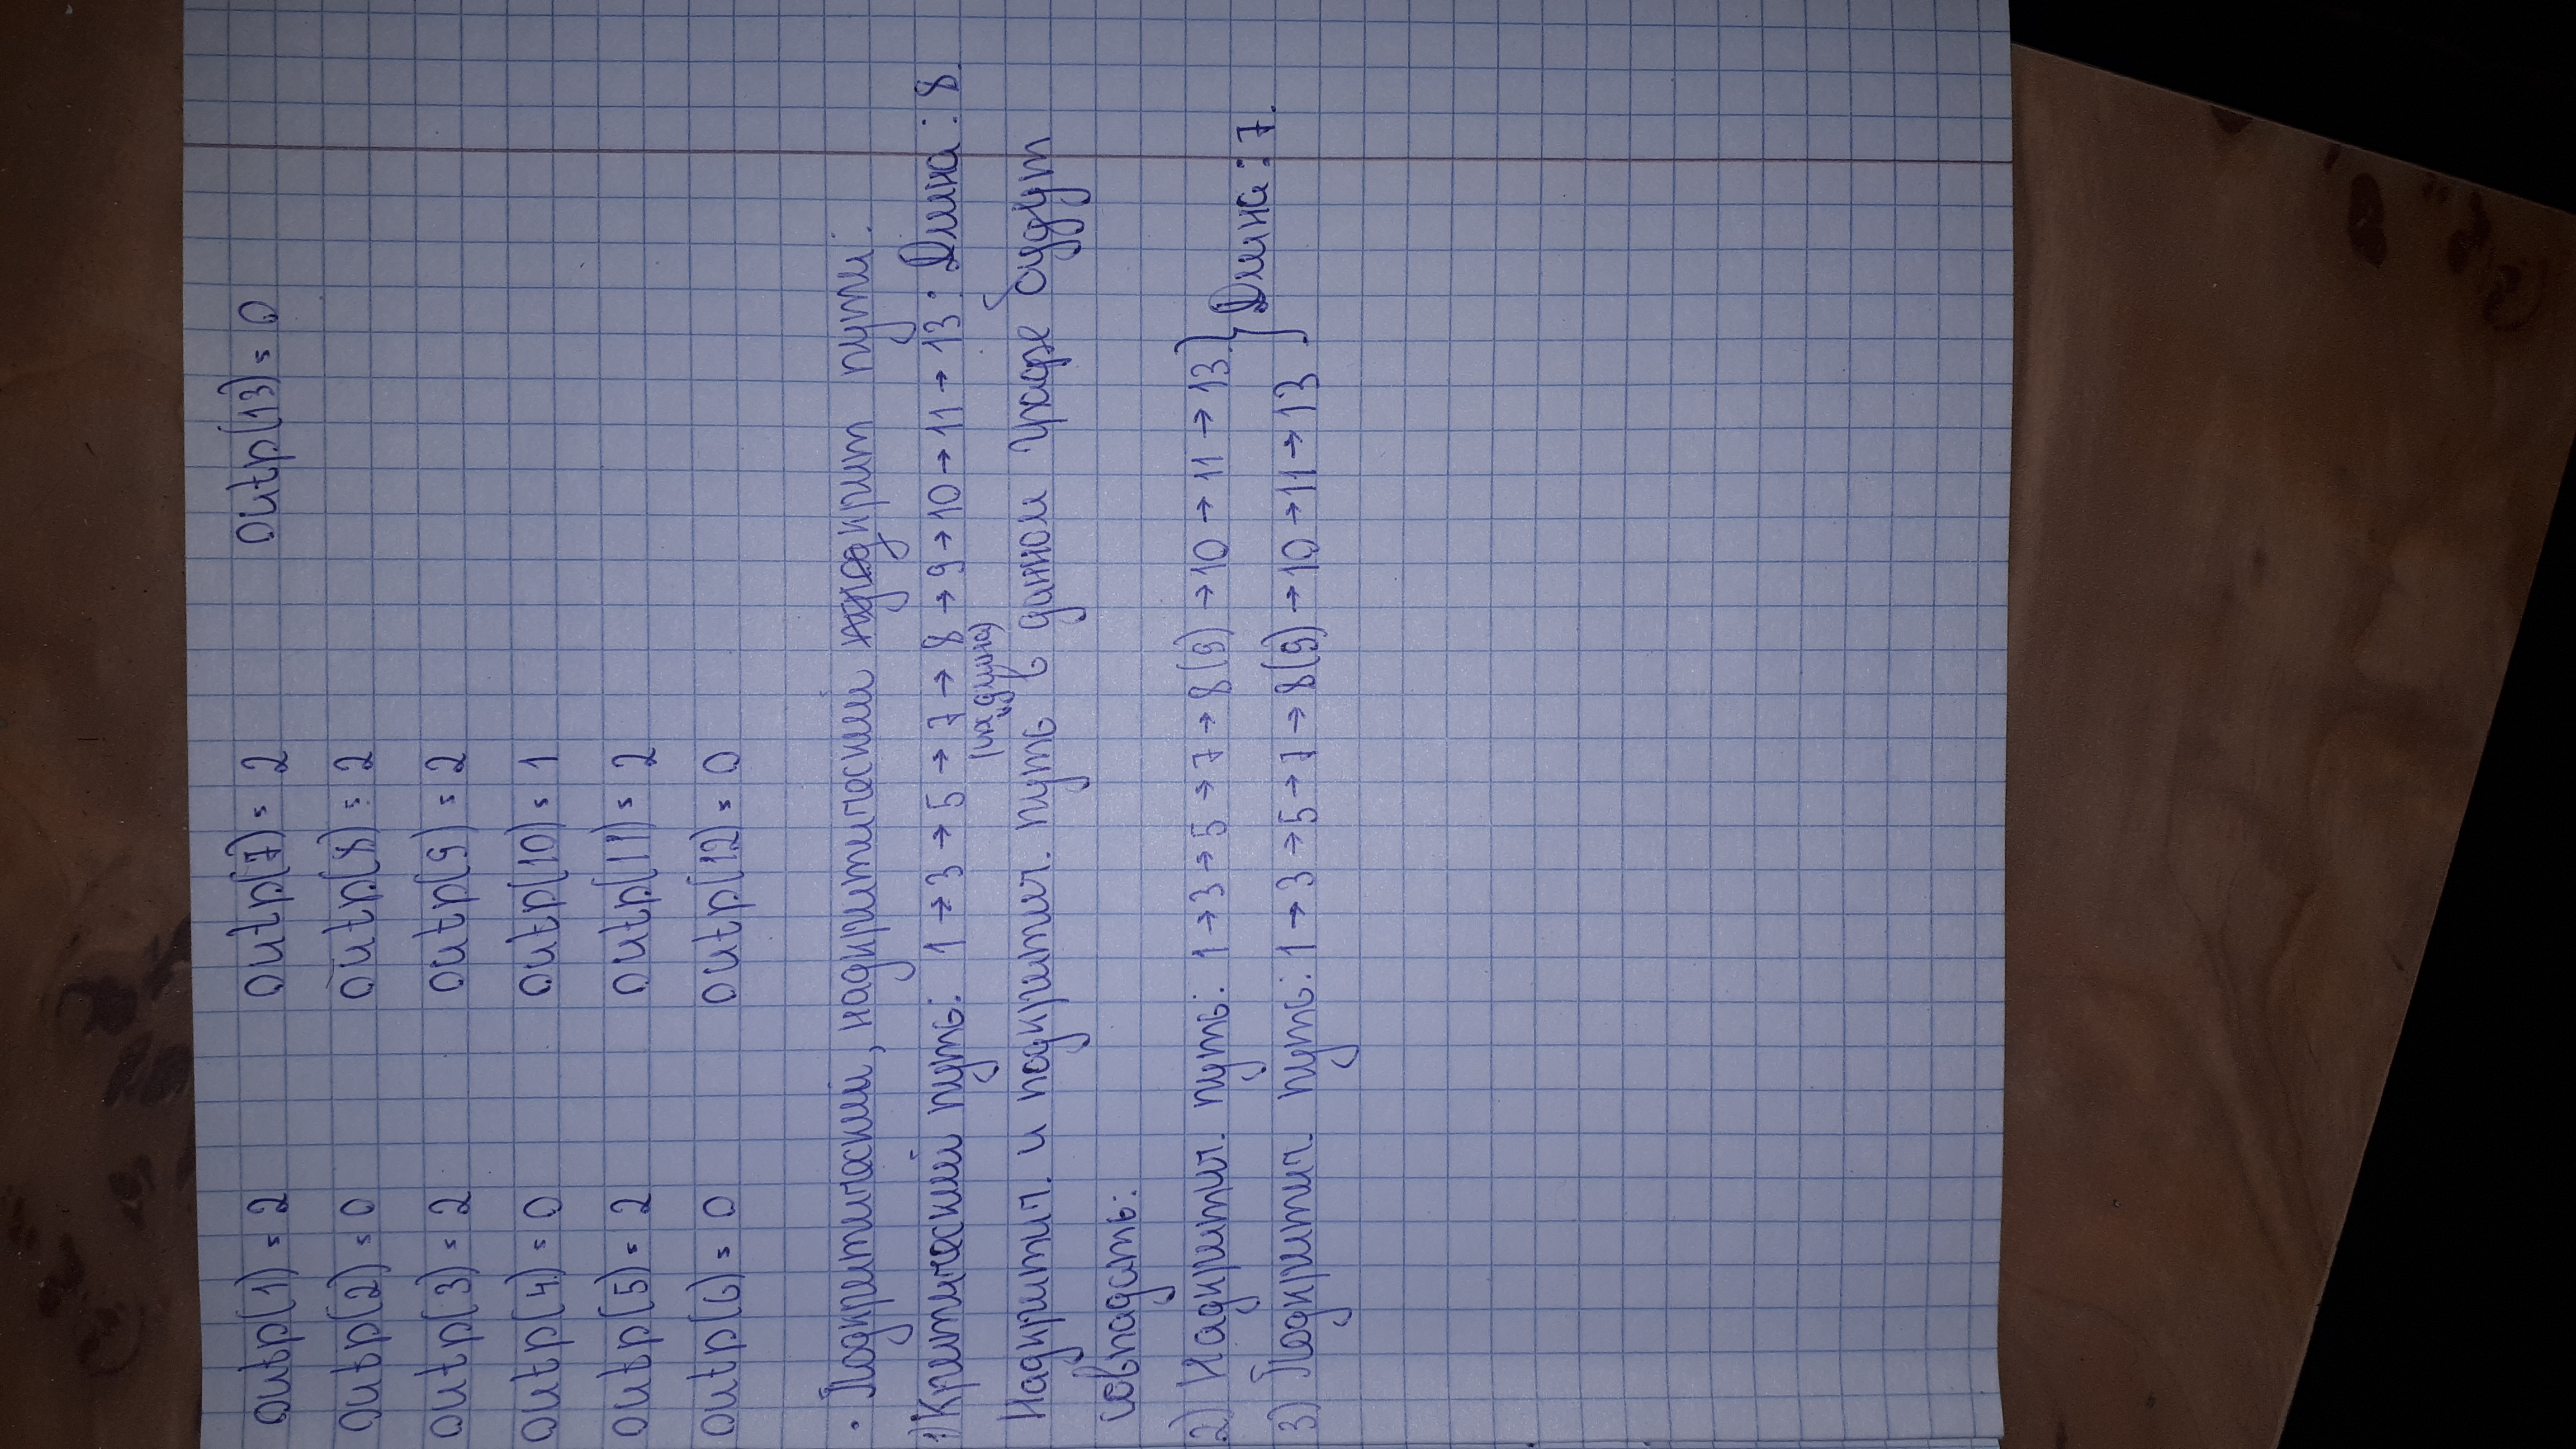 outp(1) = 2 outp(7) = 2 outp(13) = 0
outp(2) = 0 outp(8) = 2
outp(3) = 2 outp(9) = 2
outp(4) = 0 outp(10) = 1
outp(5) = 2 outp(11) = 2
outp(6) = 0 outp(12) = 0
· Подкритический, надкритический крит пути:
1) Критический путь: 1 → 3 → 5 → 7 → 8 → 9 → 10 → 11 → 13. Длина: 8.
(их длина)
Надкритич. и подкритич. путь в данном графе будут
совпадать:
2) Надкритич. путь: 1 → 3 → 5 → 7 → 8(9) → 10 → 11 → 13.
Длина: 7.
3) Подкритич. путь: 1 → 3 → 5 → 7 → 8(9) → 10 → 11 → 13